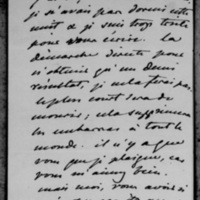 j'avais pas dormi cette
nuit et je suis trop
pour vous écrire. La
démarche directe pour
n'obtenir qu'un demi
résultat, je ne la ferai pas.
le plus court sera de
mourir; cela supprimera
les embarras à tout le
monde. il n'y a que
vous que je plaigne, car
vous m'aimez bien.
mais moi, vous avoir si